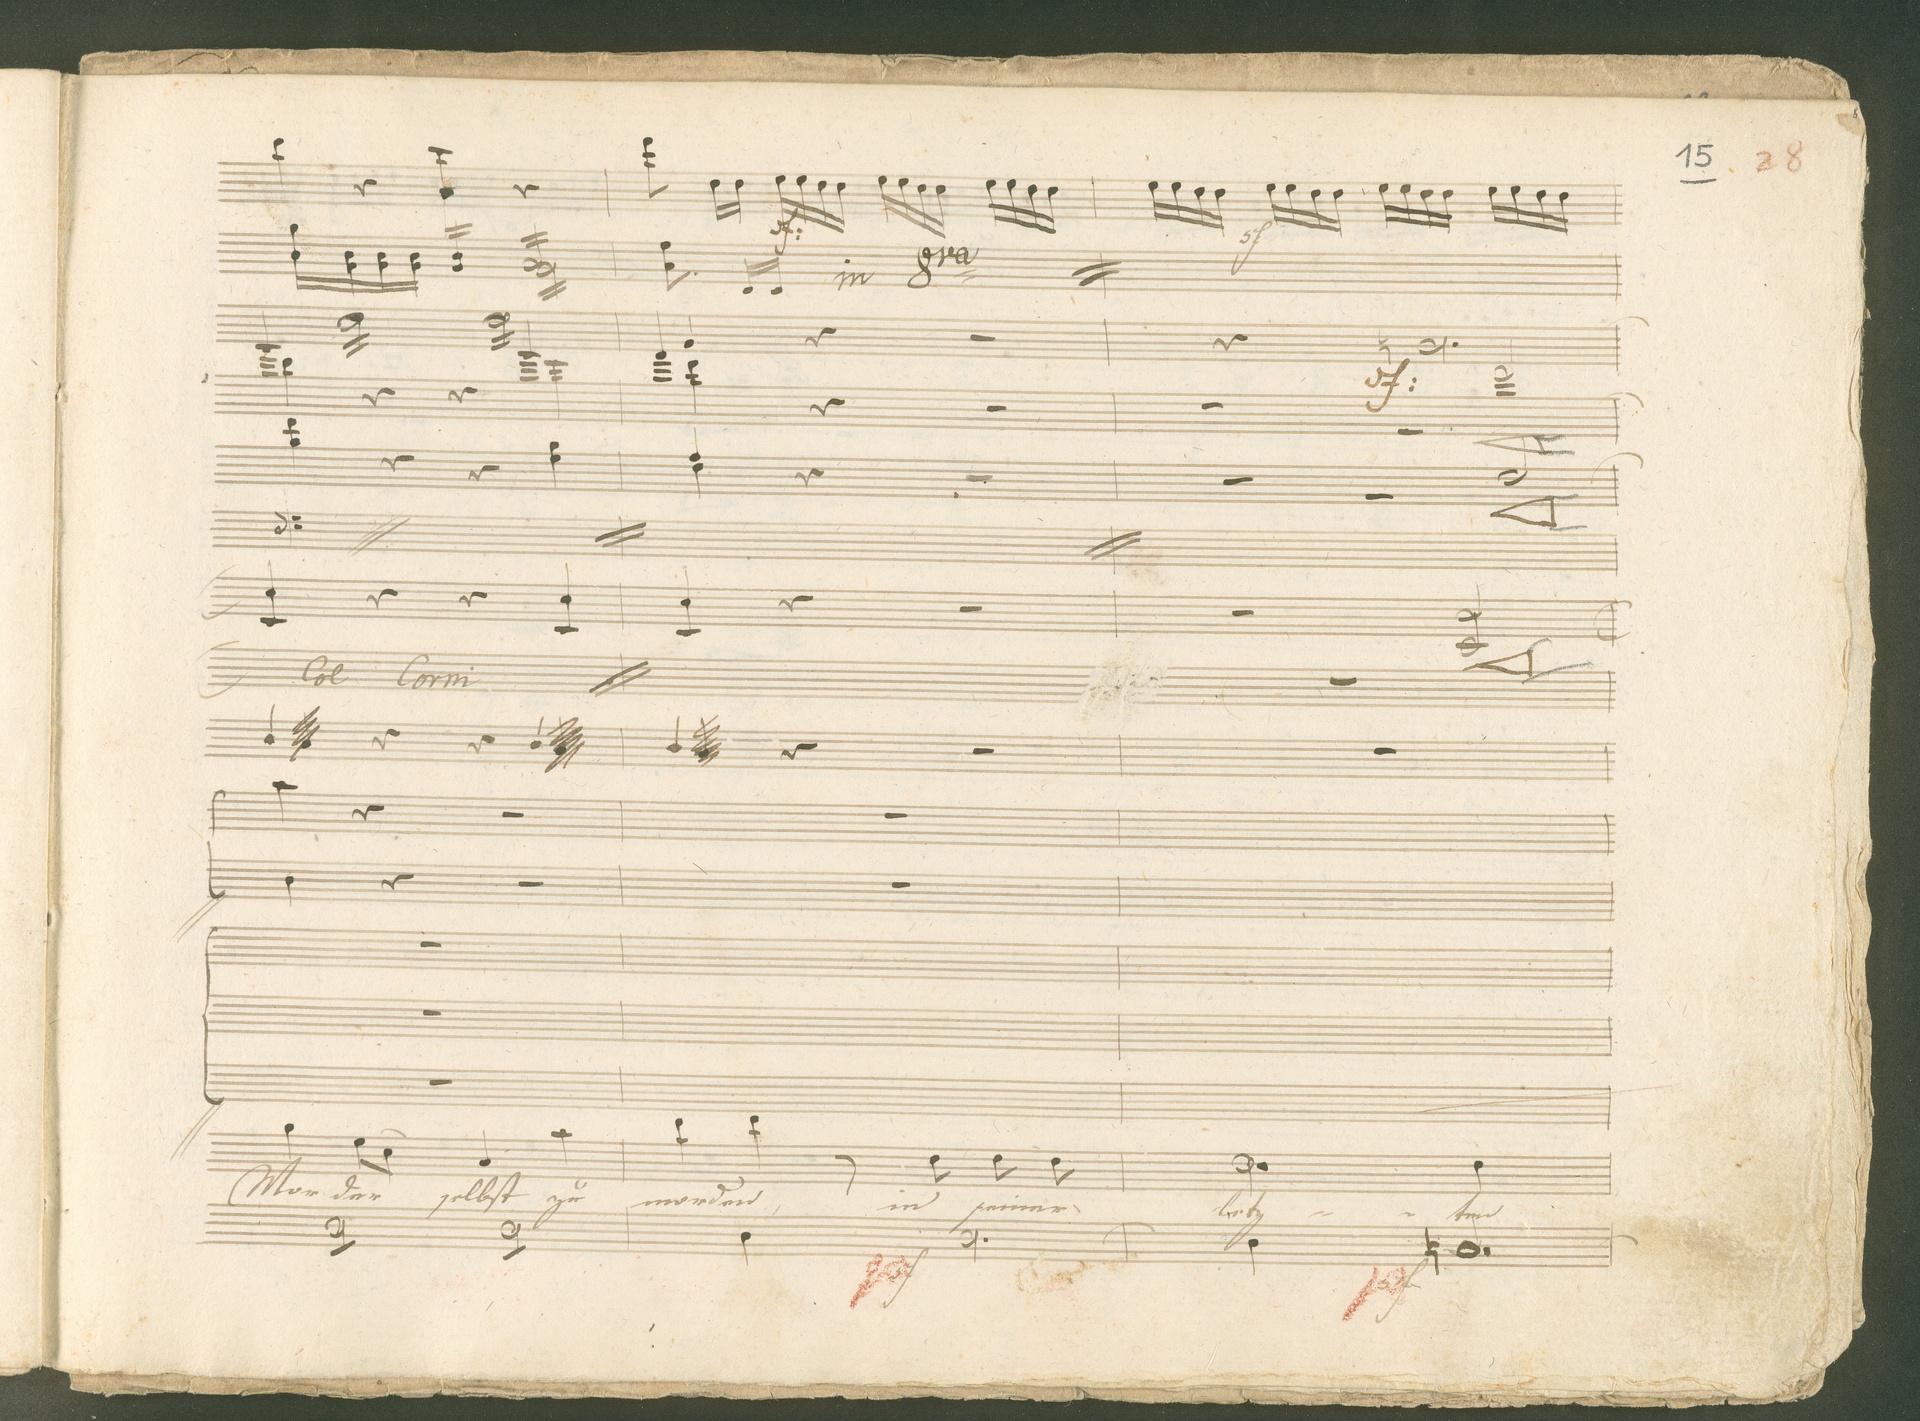 15 28
sf:
sf
in 8va
sf:
Col Corni
Mörder selbst zu morden, in seiner letz - - ten
sf
sf